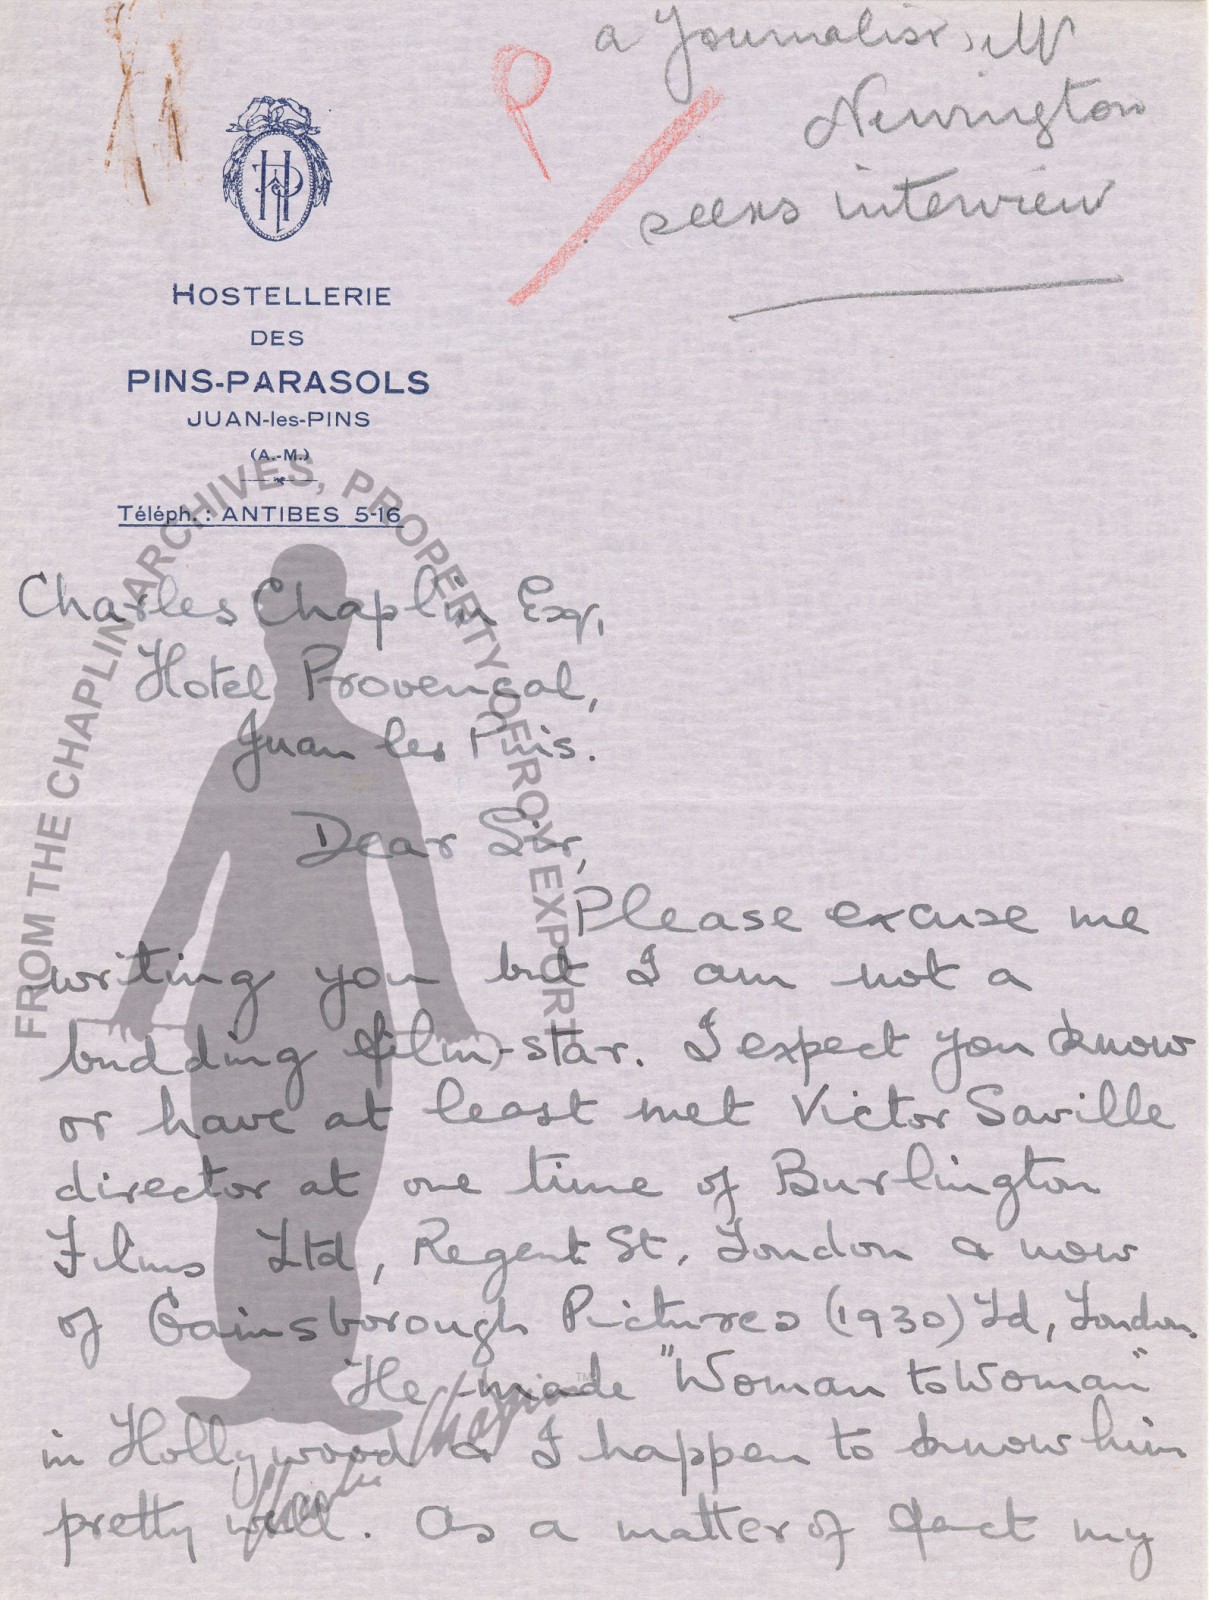 a Journalist, Mr
Newington
seeks interview
HP
HOSTELLERIE
DES
PINS-PARASOLS
JUAN-les-PINS
(A.-M.)
Téléph. : ANTIBES 5-16
FROM THE CHAPLIN ARCHIVES, PROPERTY OF ROY EXPORT
Charles Chaplin Esq,
Hotel Provencal,
Juan les Pins.
Dear Sir,
Please excuse me
writing you but I am not a
budding film-star. I expect you know
or have at least met Victor Saville
director at one time of Burlington
Films Ltd, Regent St, London & now
of Gainsborough Pictures (1930) Ld, London.
He made "Woman to Woman"
in Hollywood & I happen to know him
pretty well. As a matter of fact my
Charlie Chaplin TM